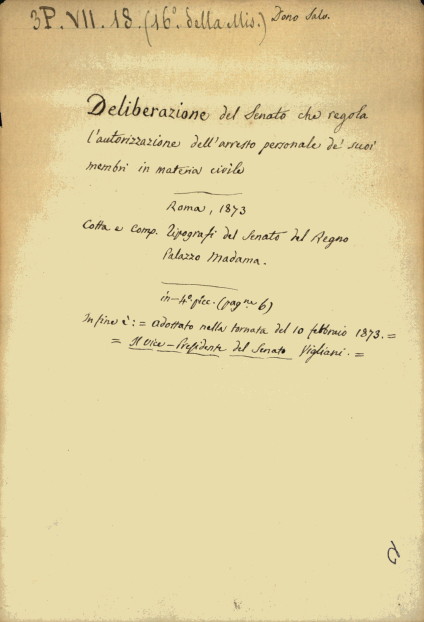 3P. VII. 18. (16º della Mis.) Dono Salv.
Deliberazione del Senato che regola
l'autorizzazione dell'arresto personale de' suoi
membri in materia civile
Roma, 1873
Cotta e Comp. Tipografi del Senato del Regno
Palazzo Madama.
in-4º picc. (pag.ne 6)
In fine è: = adottato nella tornata del 10 febbraio 1873. =
= Il Vice-Presidente del Senato Vigliani. =